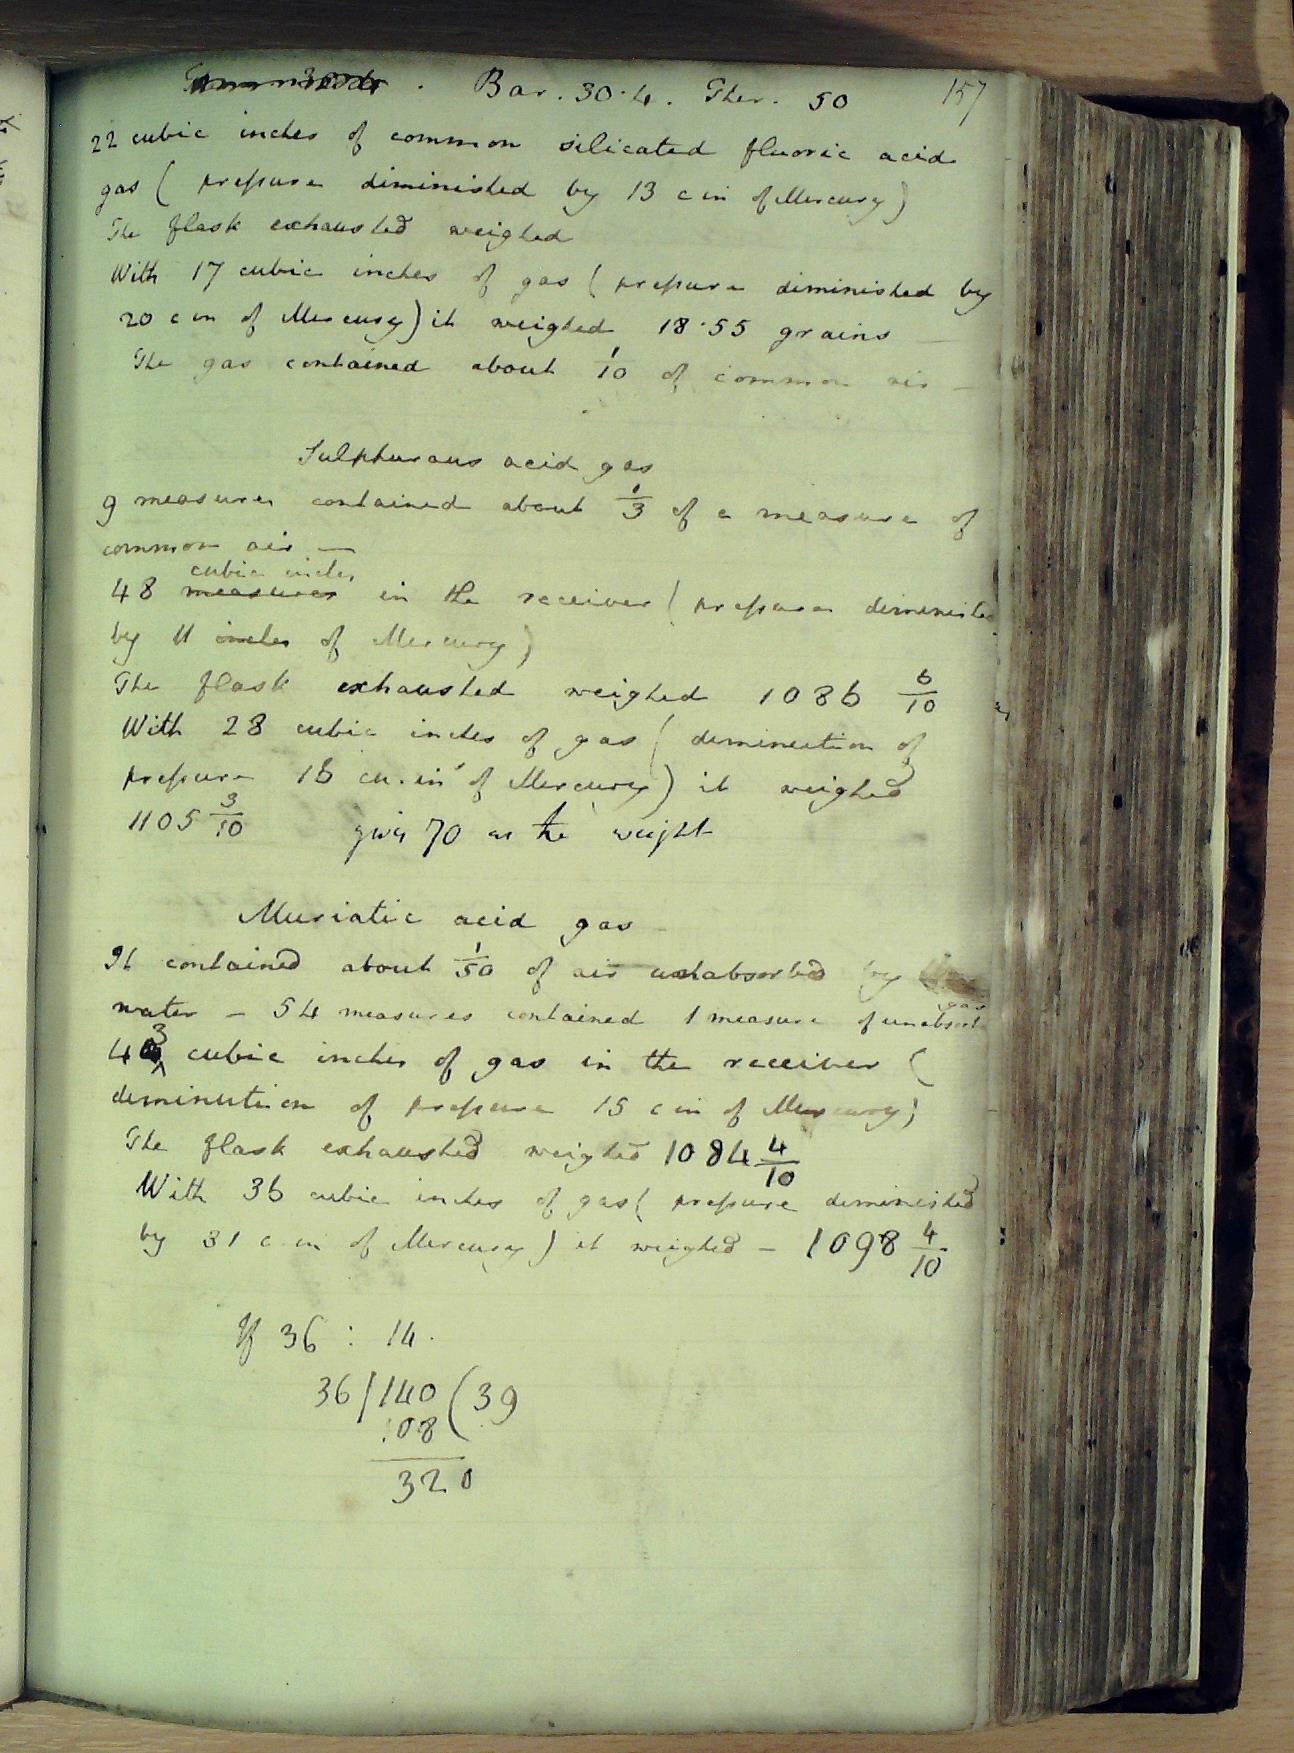 Bar. 30.4. Ther. 50 157
22 cubic inches of common silicated fluoric acid
gas ( pressure diminished by 13 c in of Mercury)
The flask exhausted weighed
With 17 cubic inches of gas ( pressure diminished by
20 c in of Mercury) it weighed 18.55 grains —
The gas contained about 1/10 of common air —
Sulphurous acid gas
9 measures contained about 1/3 of a measure of
common air —
cubic inches
48 measures in the receiver ( pressure diminished
by 11 inches of Mercury)
The flask exhausted weighed 1086 6/10
With 28 cubic inches of gas ( diminution of
pressure 16 cu. in of Mercury) it weighed
1105 3/10 gives 70 as the weight
Muriatic acid gas
It contained about 1/50 of air unabsorbed by
gas
water — 54 measures contained 1 measure of unabsorb
43 cubic inches of gas in the receiver (
diminution of pressure 15 c in of Mercury)
The flask exhausted weighed 1084 4/10
With 36 cubic inches of gas ( pressure diminished
by 31 c in of Mercury) it weighed — 1098 4/10
If 36 : 14.
36/140(39
108
320